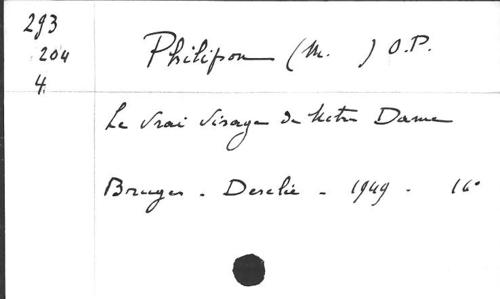 293
204
4.
Philipon (M. ) O.P.
Le Vrai Visage de Notre Dame
Bruges - Desclée - 1949 - 16°